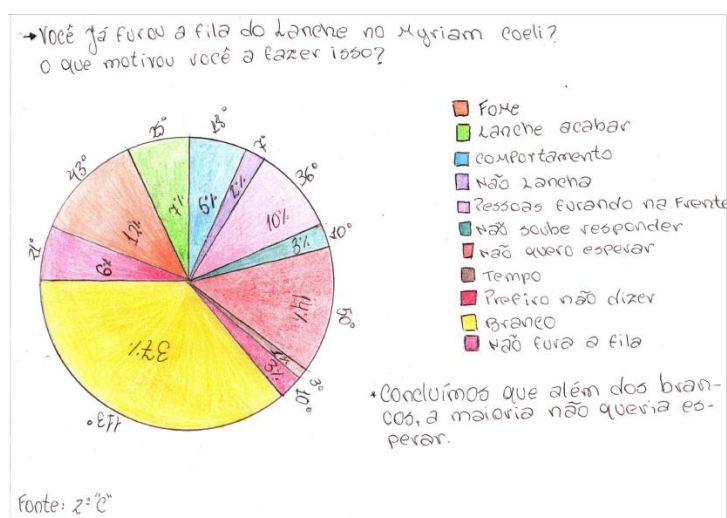 → Você já furou a fila do Lanche no Myriam coeli?
O que motivou você a fazer isso?
25°
18°
7°
36°
10°
50°
3°
10°
113°
21°
43°
7%
2%
10%
3%
14%
1%
3%
37%
6%
12%
Fome
Lanche acabar
comportamento
Não Lancha
Pessoas furando na Frente
Não soube responder
Não quero esperar
Tempo
Prefiro não dizer
Branco
Não fura a fila
*Concluímos que além dos bran-
cos, a maioria não queria es-
perar.
Fonte: 2º "C"